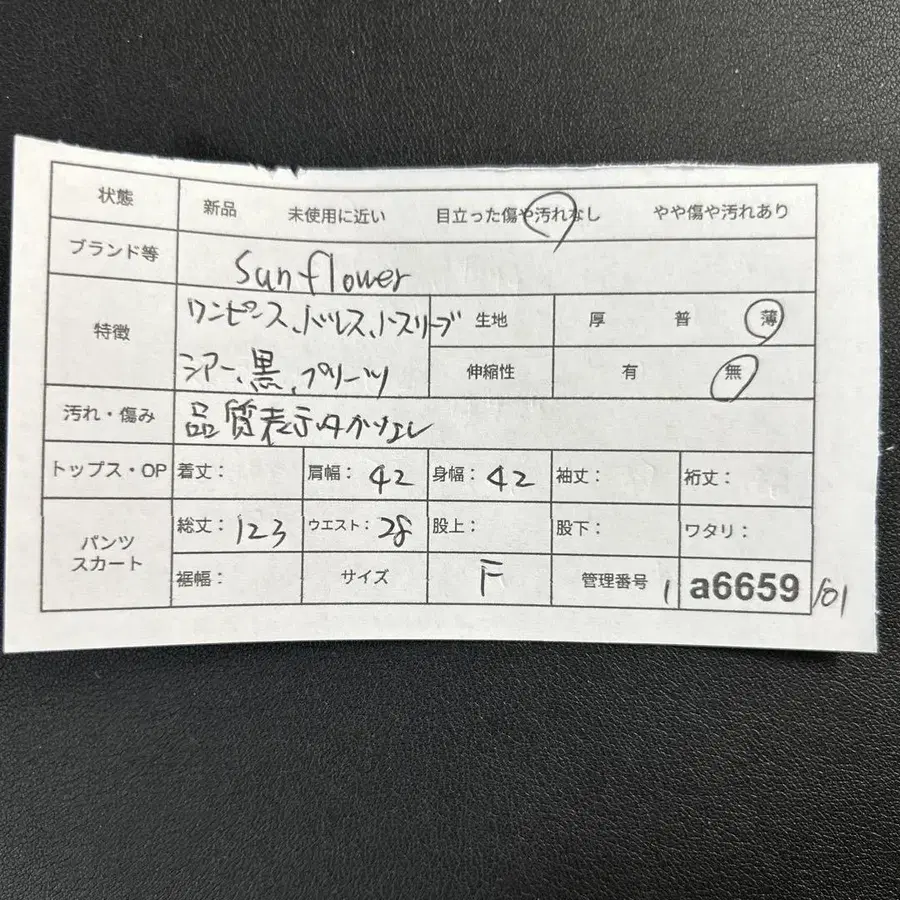 状態 新品 未使用に近い 目立った傷や汚れなし やや傷や汚れあり
ブランド等 Sunflower
特徴 ワンピース、ドレス、ノースリーブ 生地 厚 普 薄
シアー、黒、プリーツ 伸縮性 有 無
汚れ・傷み 品質表示タグなし
トップス・OP 着丈： 肩幅：42 身幅：42 袖丈： 裄丈：
パンツ スカート 総丈：123 ウエスト：28 股上： 股下： ワタリ：
裾幅： サイズ F 管理番号 1 a6659 /01